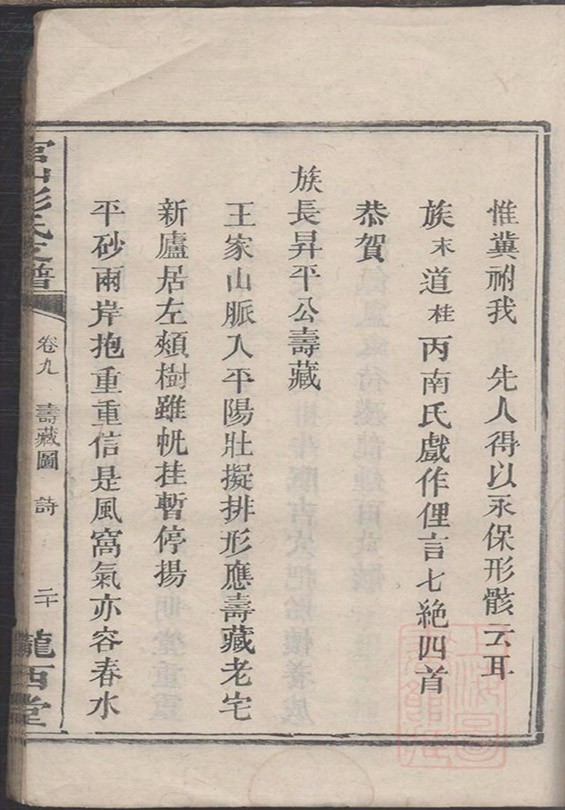 惟冀祔我　先人得以永保形骸云耳
族末道桂丙南氏戲作俚言七絶四首
恭賀
族長昇平公壽藏
王家山脈入平陽壯擬排形應壽藏老宅
新廬居左頰樹雖㡌挂暫停揚
平砂兩岸抱重重信是風窩氣亦容春水
彭氏支譜
卷九　壽藏圖　詩　二十
隴西堂